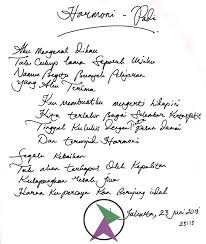 Harmoni - Padi
Aku Mengenal Dikau
Tak Cukup Lama Separuh Usiaku
Namun Begitu Banyak Pelajaran
Yang Aku Terima
Kau membuatku mengerti hidup ini
Kita terlahir Bagai Selembar Kertas Putih
Tinggal Kulukis Dengan Pesan Damai
Dan terwujud Harmoni
Segala Kebaikan
Tak akan terhapus Oleh Kepahitan
Kulapangkan Resah Jiwa
Karna Kupercaya Kan Berujung Indah
Jakarta, 23 Juni 2015
23:15